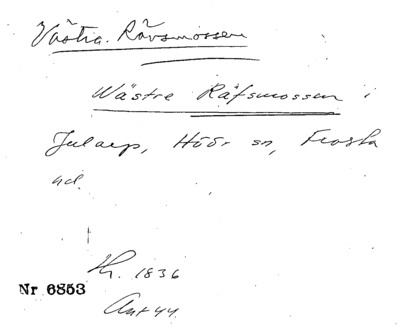 Västra Rävsmossen
Wästre Räfsmossen i
Julaep, Höör sn, Frosta
hd.
Lh. 1836
Nr 6853
Ant 44.